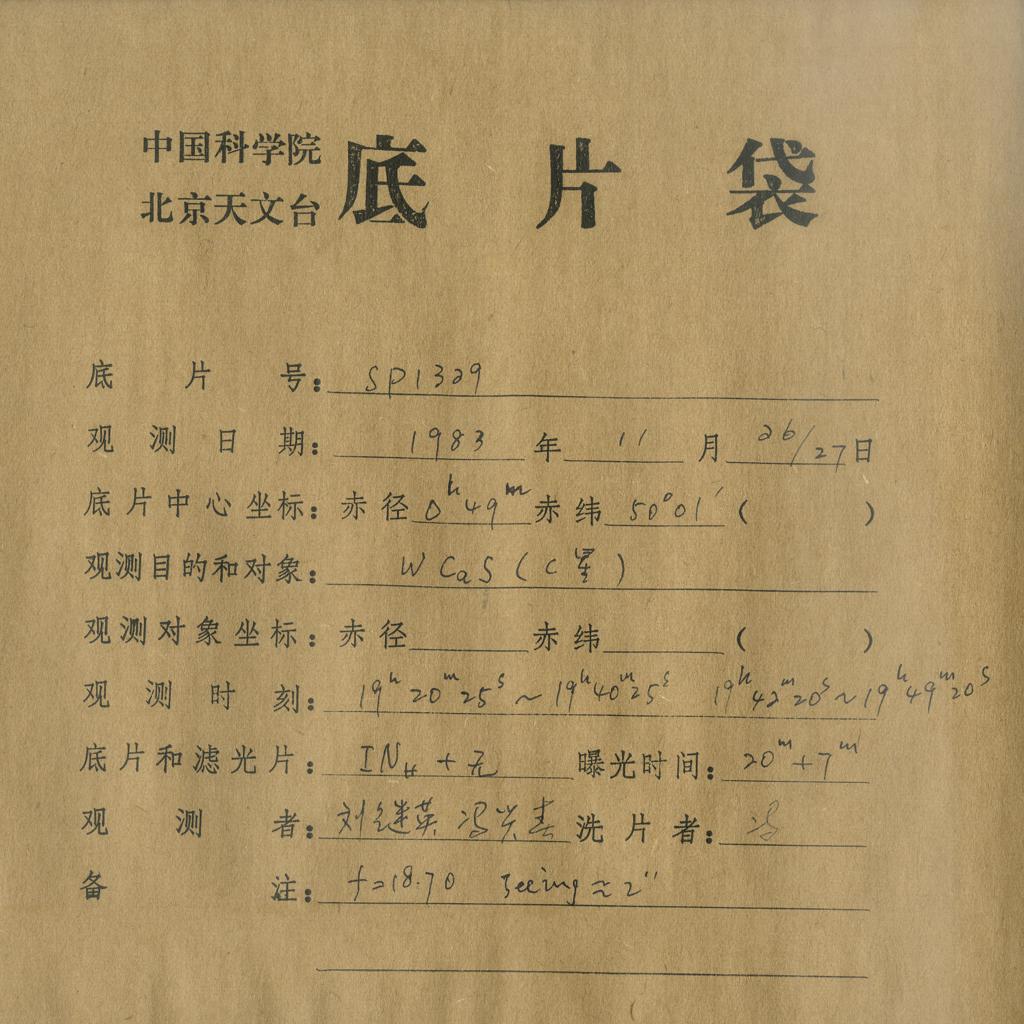 中国科学院
北京天文台
底片袋
底片号：SP1329
观测日期：1983年11月26/27日
底片中心坐标：赤径0ʰ49ᵐ赤纬50°01′（ ）
观测目的和对象：W CaS（C星）
观测对象坐标：赤径 赤纬 （ ）
观测时刻：19ʰ20ᵐ25ˢ～19ʰ40ᵐ25ˢ 19ʰ42ᵐ20ˢ～19ʰ49ᵐ20ˢ
底片和滤光片：IN_H+无 曝光时间：20ᵐ+7ᵐ
观测者：刘继英 冯兴春 洗片者：冯
备注：f=18.70 Seeing≈2″